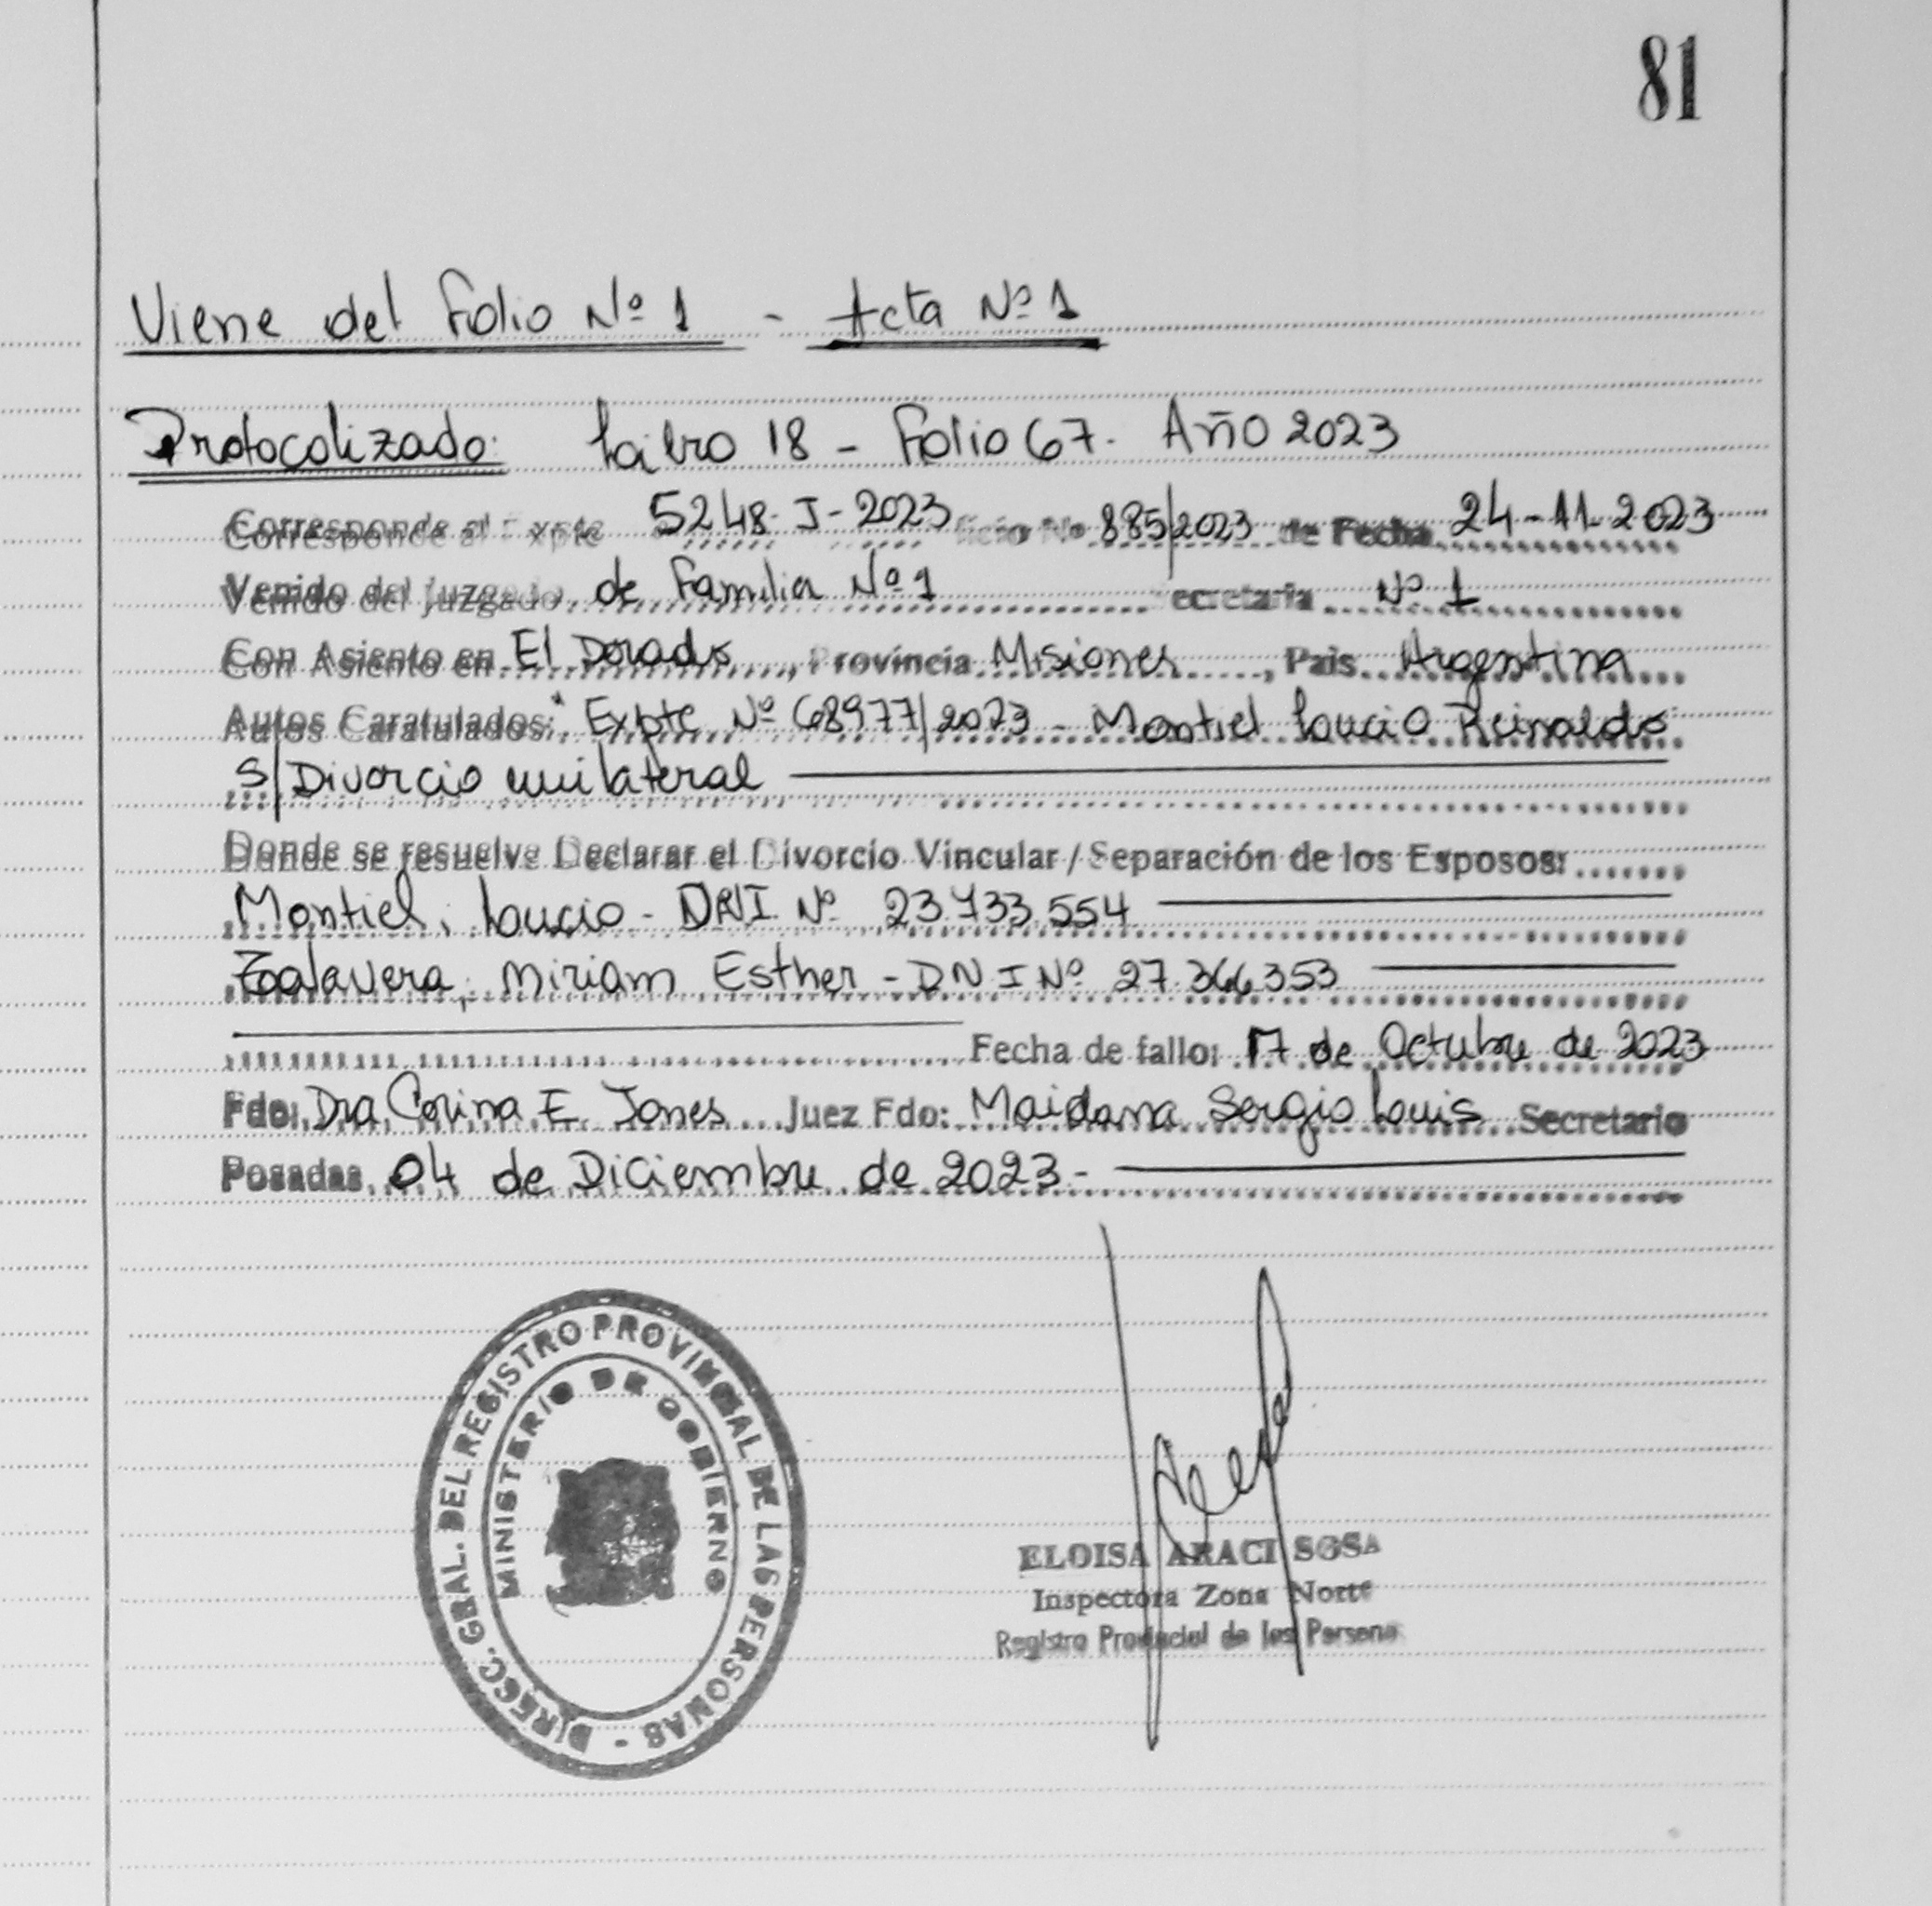 81
Viene del Folio Nº 1 - Acta Nº 1
Protocolizado: Libro 18 - Folio 67. Año 2023
Corresponde al Expte 5248-J-2023 ficio No 885/2023 de Fecha 24-11-2023
Venido del juzgado de Familia Nº 1 ecretaria Nº 1
Con Asiento en El Dorado, Provincia Misiones, Pais Argentina
Autos Caratulados: "Expte Nº 68977/2023 - Montiel Lucio Reinaldo
S/Divorcio unilateral
Donde se resuelve Declarar el Divorcio Vincular / Separación de los Esposos:
Montiel, Lucio - DNI Nº 23.733.554
Talavera, Miriam Esther - DNI Nº 27.366.353
Fecha de fallo: 17 de Octubre de 2023
Fdo: Dra Corina E. Jones Juez Fdo: Maidana Sergio Luis Secretario
Posadas, 04 de Diciembre de 2023-
DIRECC. GRAL. DEL REGISTRO PROVINCIAL DE LAS PERSONAS -
MINISTERIO DE GOBIERNO
ELOISA ARACI SOSA
Inspectora Zona Norte
Registro Provincial de las Persona